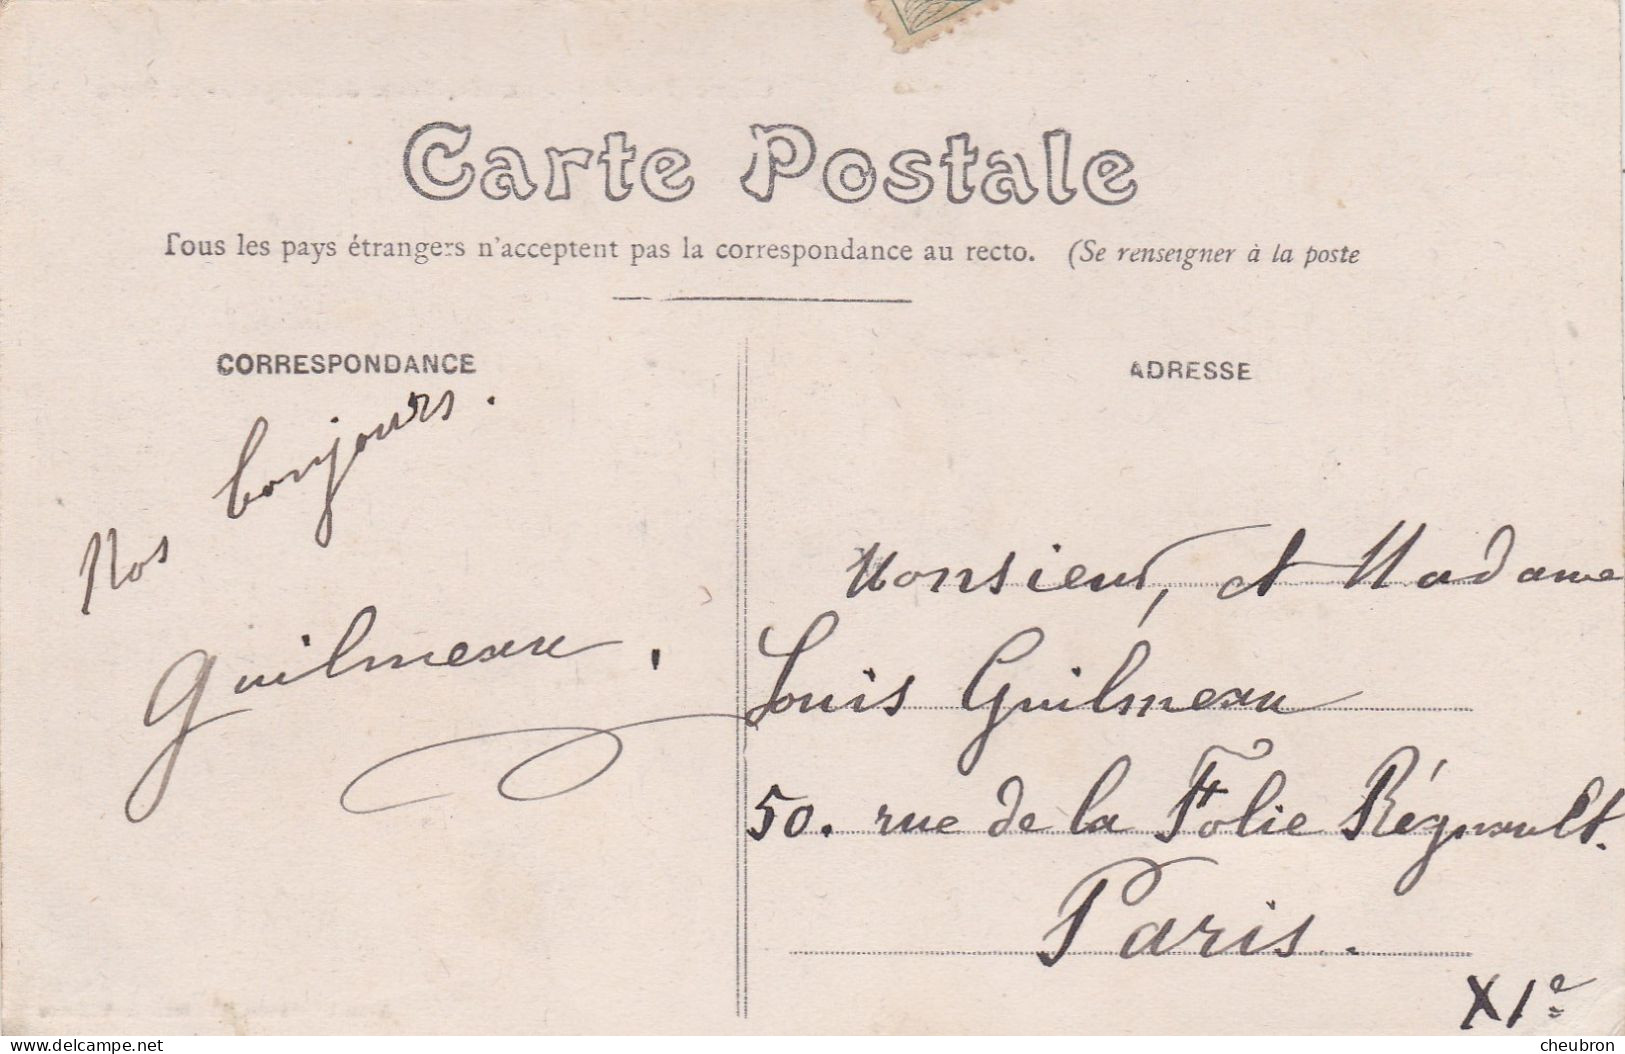 Carte Postale
Tous les pays étrangers n'acceptent pas la correspondance au recto. (Se renseigner à la poste
CORRESPONDANCE
Nos bonjours.
Guilmeau.
ADRESSE
Monsieur, et Madame
Louis Guilmeau
50. rue de la Folie Régnault.
Paris.
XIe
delcampe.net
cheubron